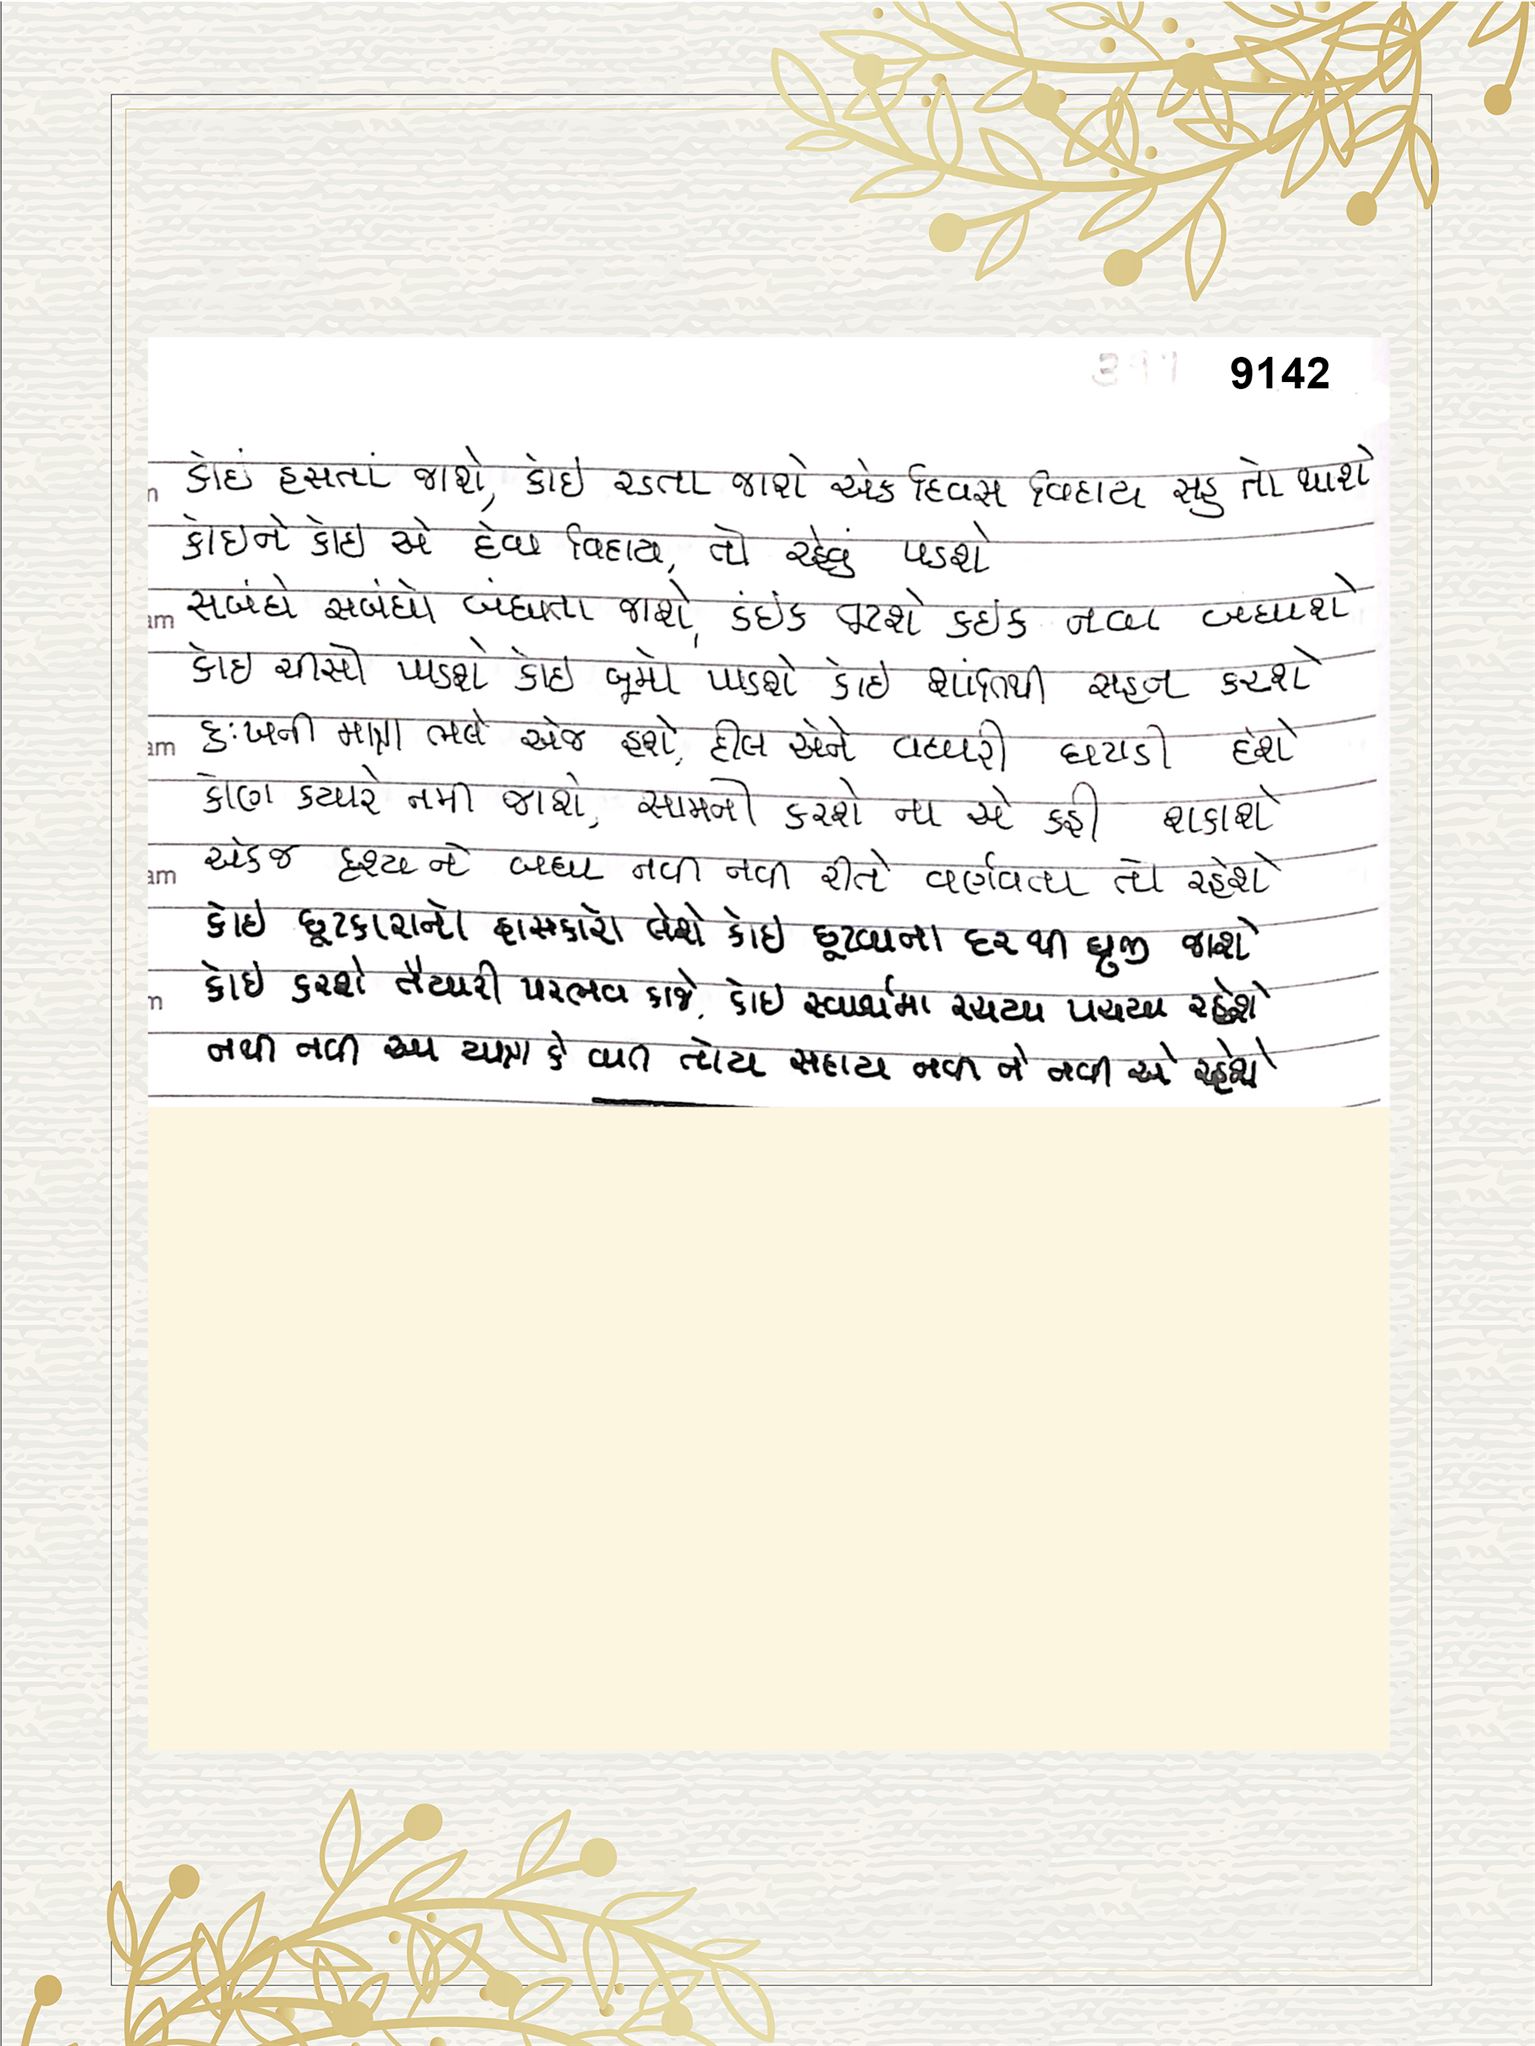 9142
કોઇ હસતાં જાશે, કોઇ રડતા જાશે એક દિવસ વિદાય સહુ તો થાશે
કોઇને કોઇ એ દેવા વિદાય, તો રહેવું પડશે
સબંધે સબંધો બંધાતા જાશે, કંઇક તૂટશે કઇક નવા બંધાશે
કોઇ ચીસો પાડશે કોઇ બૂમો પાડશે કોઇ શાંતિથી સહન કરશે
દુઃખની માત્રા ભલે એજ હશે, દીલ એને વધારી ઘટાડી દેશે
કોણ કયારે નમી જાશે, સામનો કરશે ના એ કહી શકાશે
એકજ દૃશ્ય ને બધા નવી નવી રીતે વર્ણવતા તો રહેશે
કોઇ છૂટકારાનો હાસકારો લેશે કોઇ છૂટવાના ડર થી ધ્રુજી જાશે
કોઇ કરશે તૈયારી પરભવ કાજે, કોઇ સ્વાર્થમા રચયા પચયા રહેશે
નથી નવી આ યાત્રા કે વાત તોય સદાય નવી ને નવી એ રહેશે